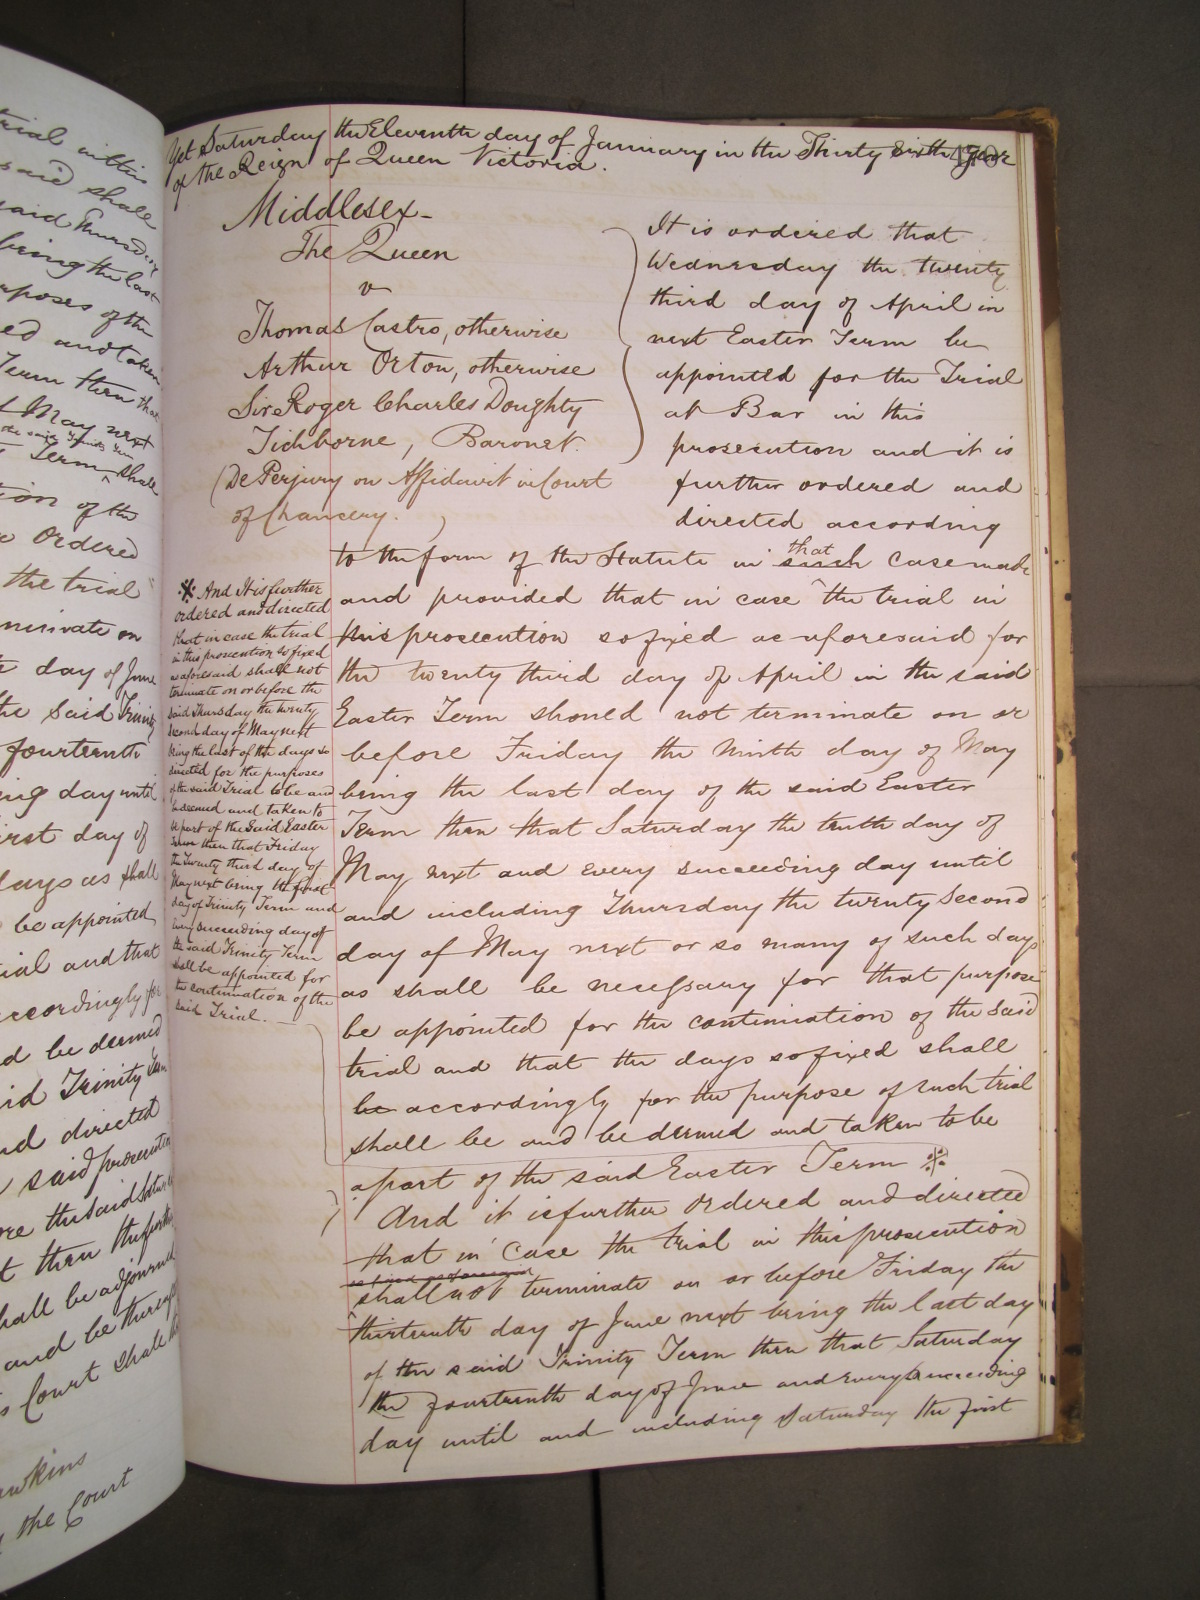 Yet Saturday the Eleventh day of January in the Thirty Sixth Year
of the Reign of Queen Victoria.
Middlesex-
The Queen
v
Thomas Castro, otherwise
Arthur Orton, otherwise
Sir Roger Charles Doughty
Tichborne, Baronet.
(De Perjury on Affidavit in Court
of Chancery. )
It is ordered that
Wednesday the twenty
third day of April in
next Easter Term be
appointed for the Trial
at Bar in this
prosecution and it is
further ordered and
directed according
to the form of the Statute in such that case made
and provided that in case the trial in
this prosecution so fixed as aforesaid for
the twenty third day of April in the said
Easter Term should not terminate on or
before Friday the Ninth day of May
being the last day of the said Easter
Term then that Saturday the tenth day of
May next and every succeeding day until
and including Thursday the twenty Second
day of May next or so many of such days
as shall be necessary for that purpose
be appointed for the continuation of the said
trial and that the days so fixed shall
be accordingly for the purpose of such trial
shall be and be deemed and taken to be
a part of the said Easter Term ※
And it is further ordered and directed
that in case the trial in this prosecution
so fixed as aforesaid
shall not terminate on or before Friday the
thirteenth day of June next being the last day
of the said Trinity Term then that Saturday
the fourteenth day of June and every succeeding
day until and including Saturday the first
※ And It is further
ordered and directed
that in case the trial
in this prosecution so fixed
as aforesaid shall not
terminate on or before the
said Thursday the twenty
second day of May next
being the last of the days so
directed for the purposes
of the said Trial to be and
be deemed and taken to
be part of the said Easter
Term then that Friday
the Twenty third day of
May next being the first
day of Trinity Term and
every succeeding day of
the said Trinity Term
shall be appointed for
the continuation of the
said Trial.
trial in this
said shall
said Thursday
being the last
purposes of the
ed and taken
Term then that
May next
Term shall
tion of the
Ordered
the trial
terminate on
day of June
the said Trinity
fourteenth
ing day until
first day of
days as shall
be appointed
trial and that
accordingly for
nd be deemed
aid Trinity Term
nd directed
said prosecution
ore the said Saturday
t then the further
hall be adjourned
and be thereafter
s Court shall
awkins
the Court